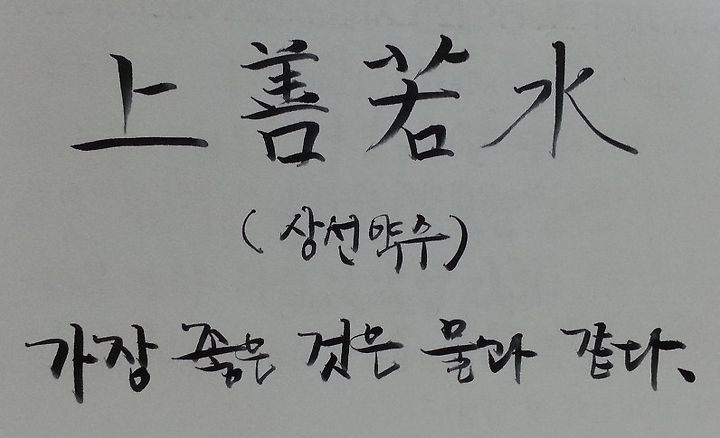 上善若水
(상선약수)
가장 좋은 것은 물과 같다.